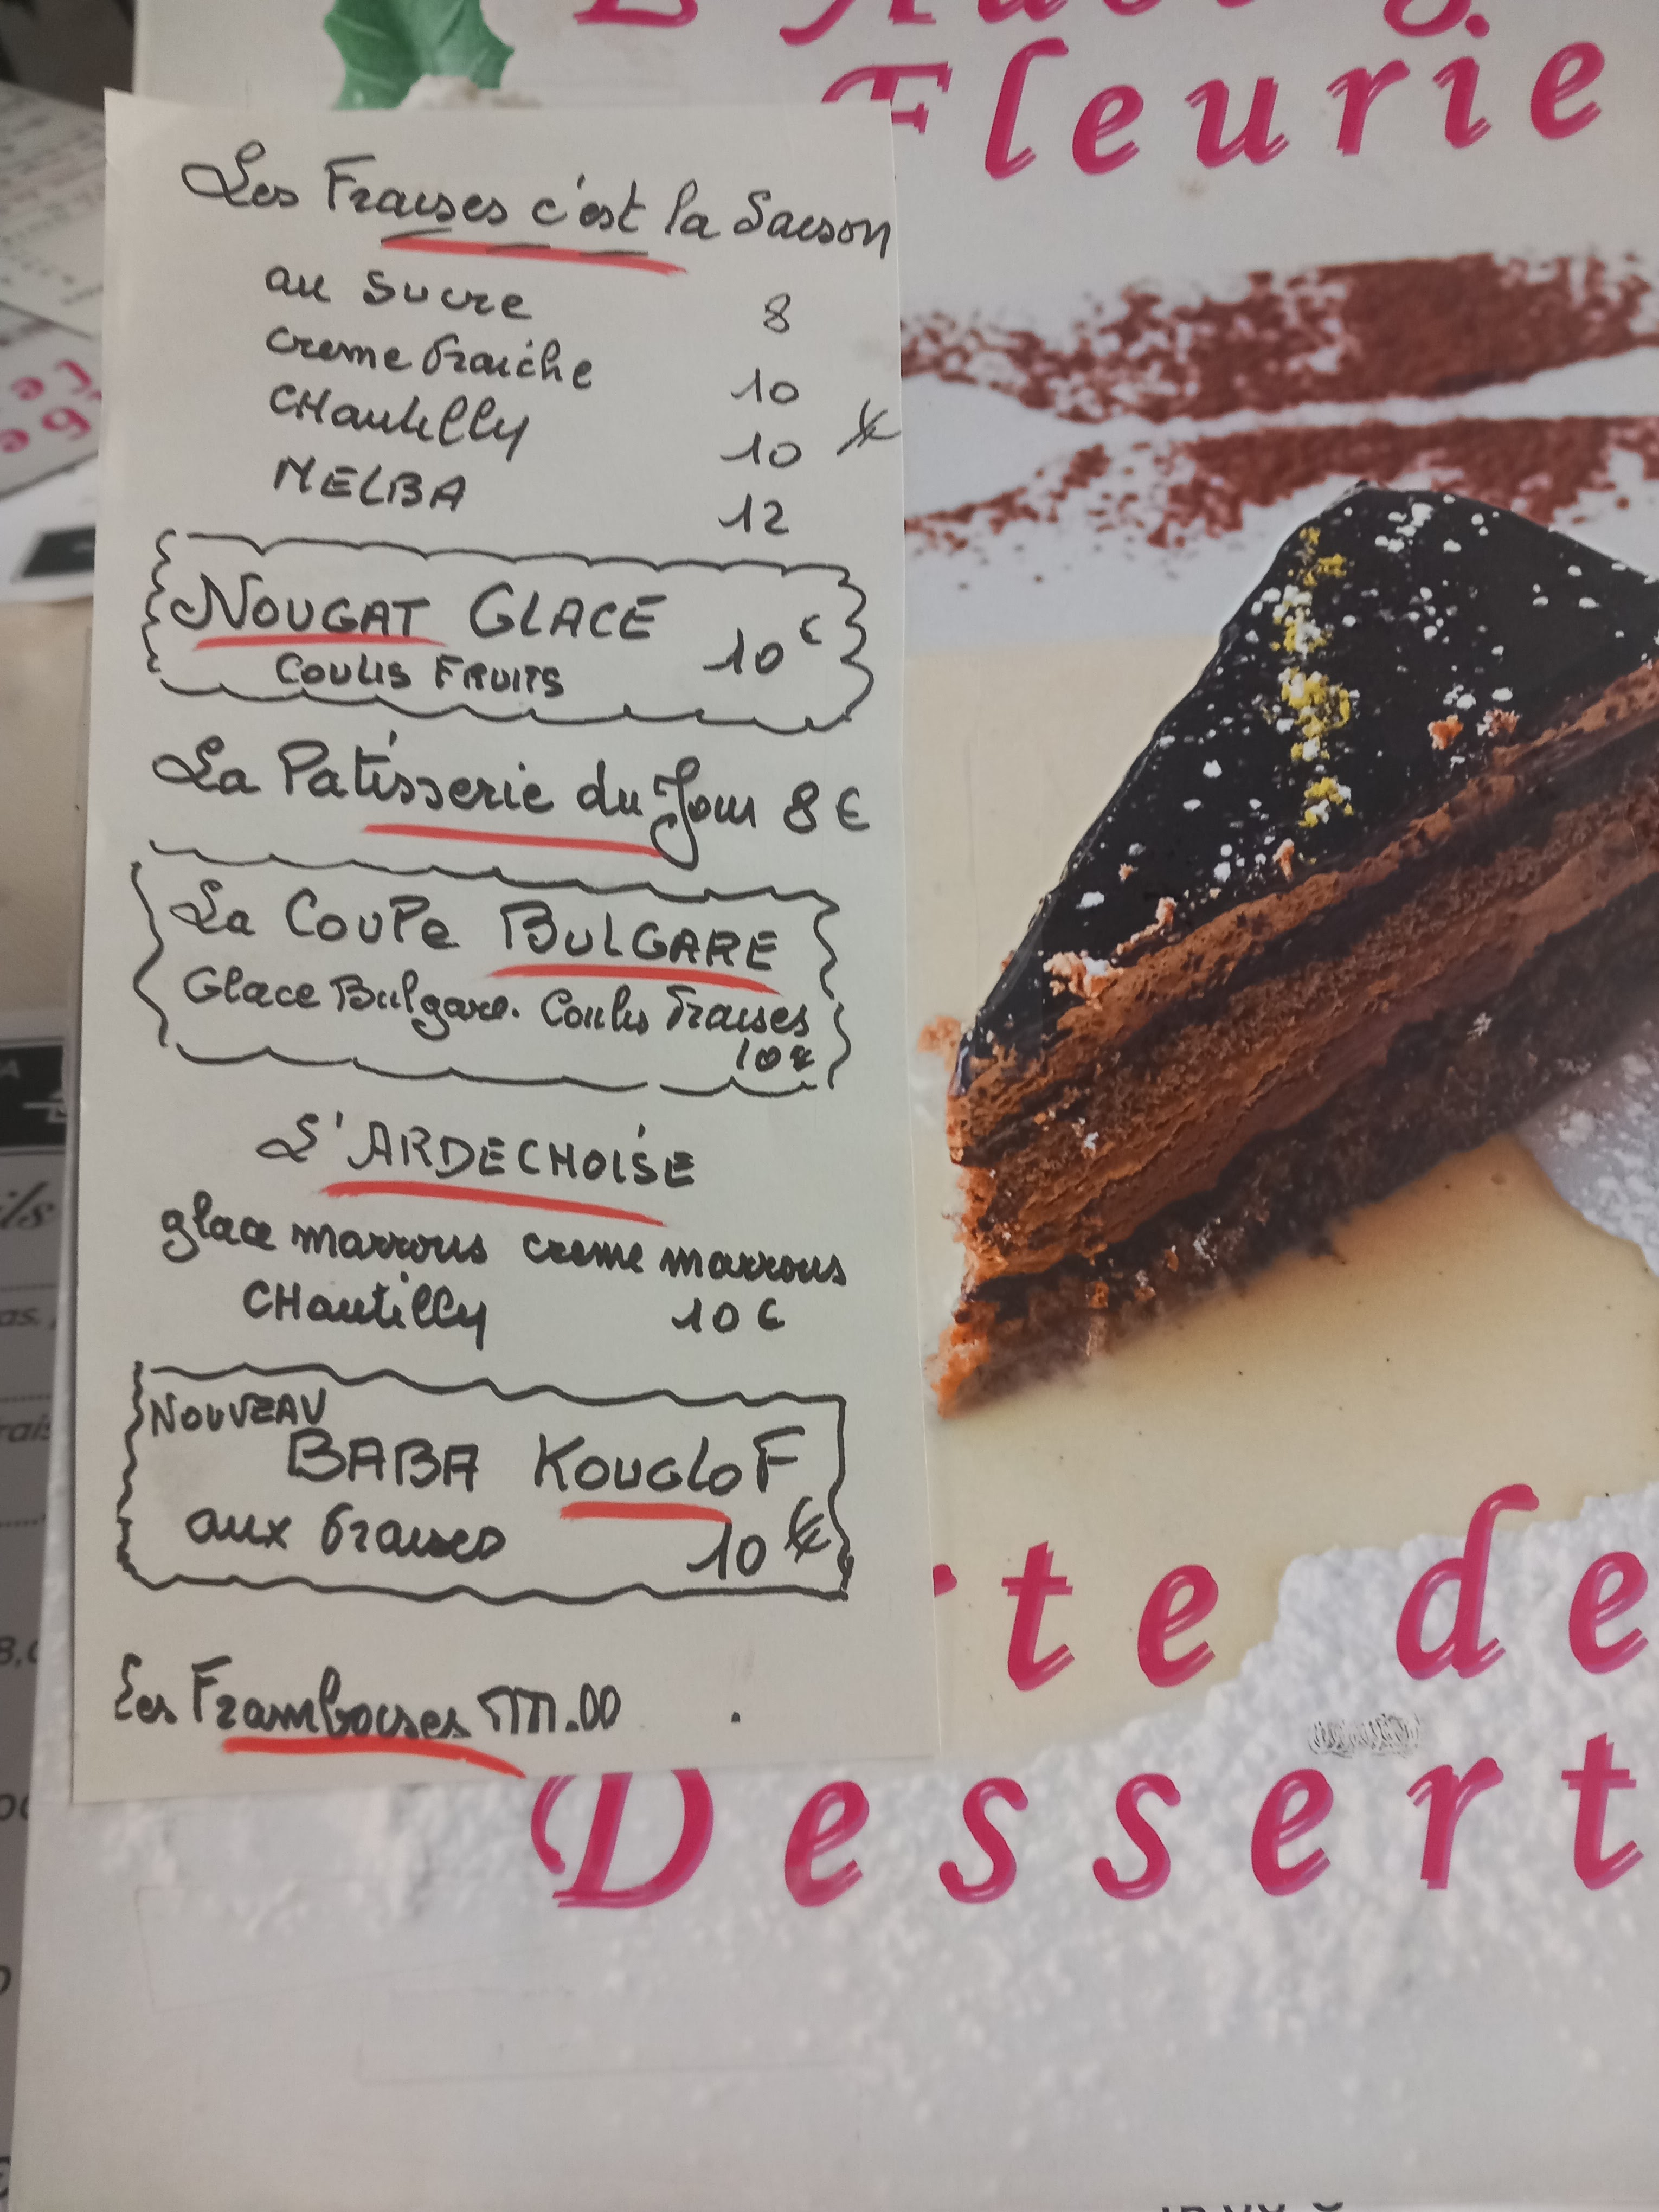 Fleurie
Les Fraises c'est la Saison
au Sucre 8
creme fraiche 10
CHantilly 10 €
MELBA 12
NOUGAT GLACE 10€
COULIS FRUITS
La Patisserie du Jour 8€
La COUPe BULGARE
Glace Bulgare. Coulis fraises
10€
L'ARDECHOISE
glace marrons creme marrons
CHantilly 10€
NOUVEAU
BABA KOUGLOF
aux fraises 10€
Les Framboises
rte de
Dessert